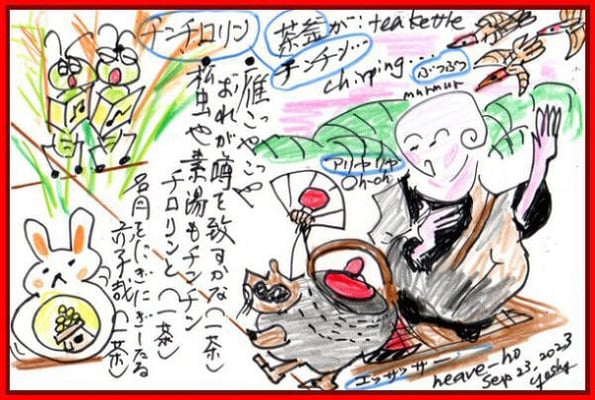 チンチロリン
茶釜が! tea kettle
チンチン...
chirping...
ぶつぶつ
murmur
アリャリャ
Oh-oh
雁ごやごや
おれが噂を致すかな(一茶)
松虫や素湯もチンチン
チロリンと(一茶)
名月をにぎにぎしたる
赤子哉(一茶)
エッサッサー
heave-ho
Sep 23, 2023
yoshy